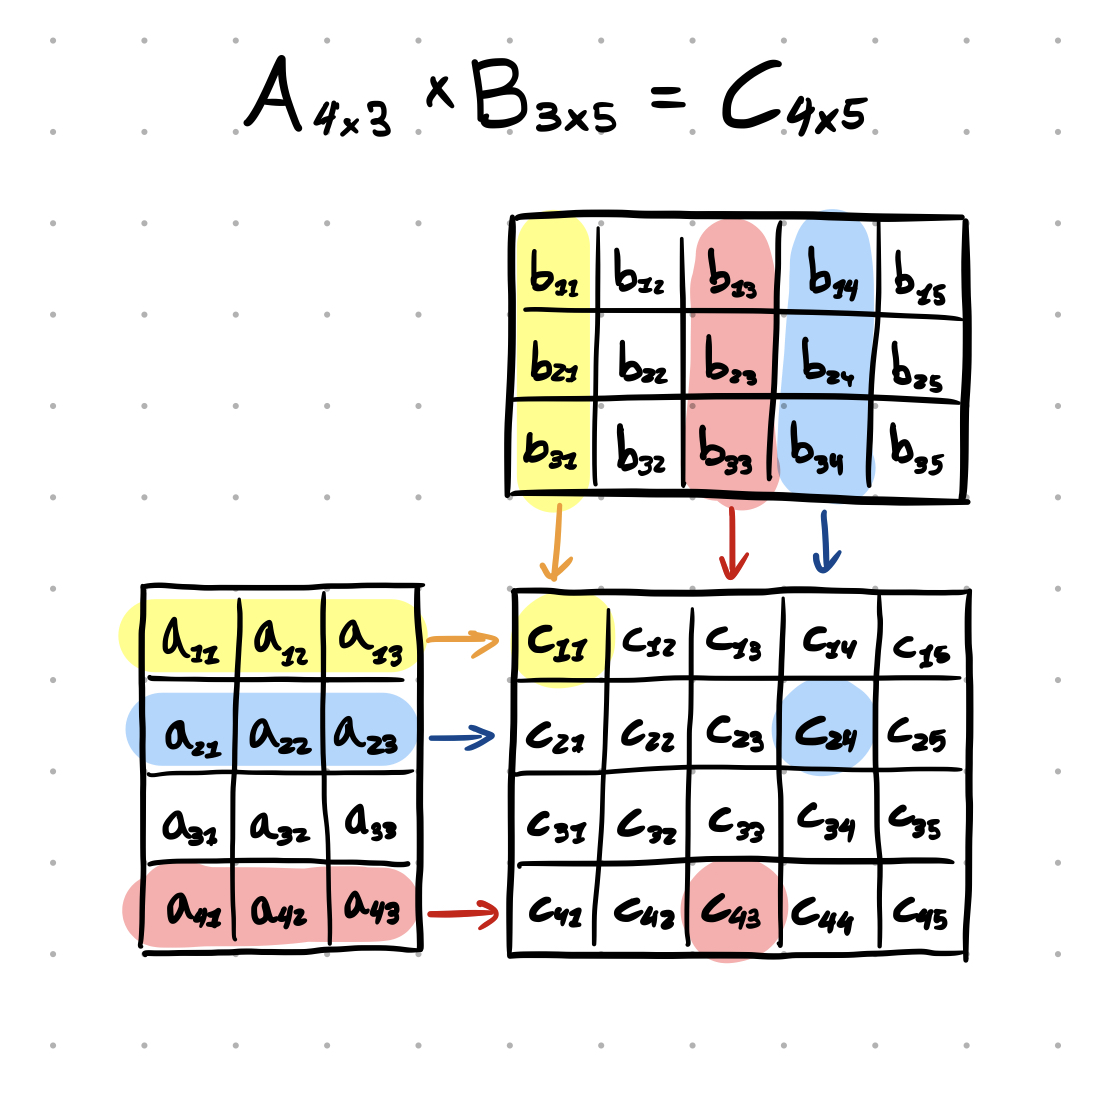 A4x3 × B3x5 = C4x5
b11 b12 b13 b14 b15
b21 b22 b23 b24 b25
b31 b32 b33 b34 b35
a11 a12 a13
a21 a22 a23
a31 a32 a33
a41 a42 a43
c11 c12 c13 c14 c15
c21 c22 c23 c24 c25
c31 c32 c33 c34 c35
c41 c42 c43 c44 c45